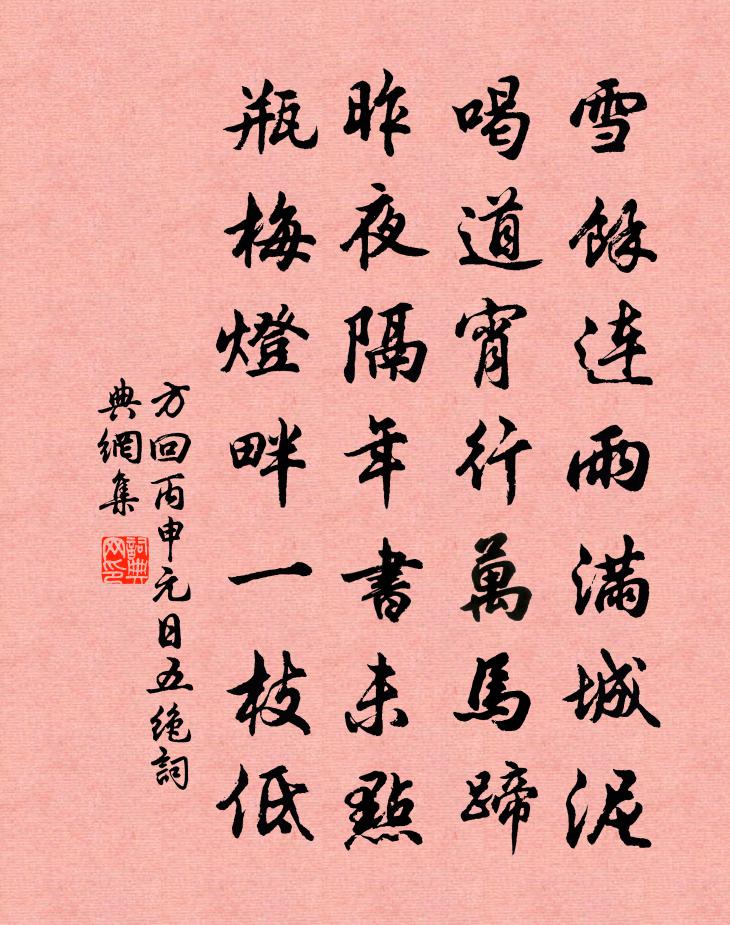 雪餘連雨滿城泥
喝道宵行萬馬蹄
昨夜隔年書未點
瓶梅燈畔一枝低
方回丙申元日五絶詞
典網集
詞典網印